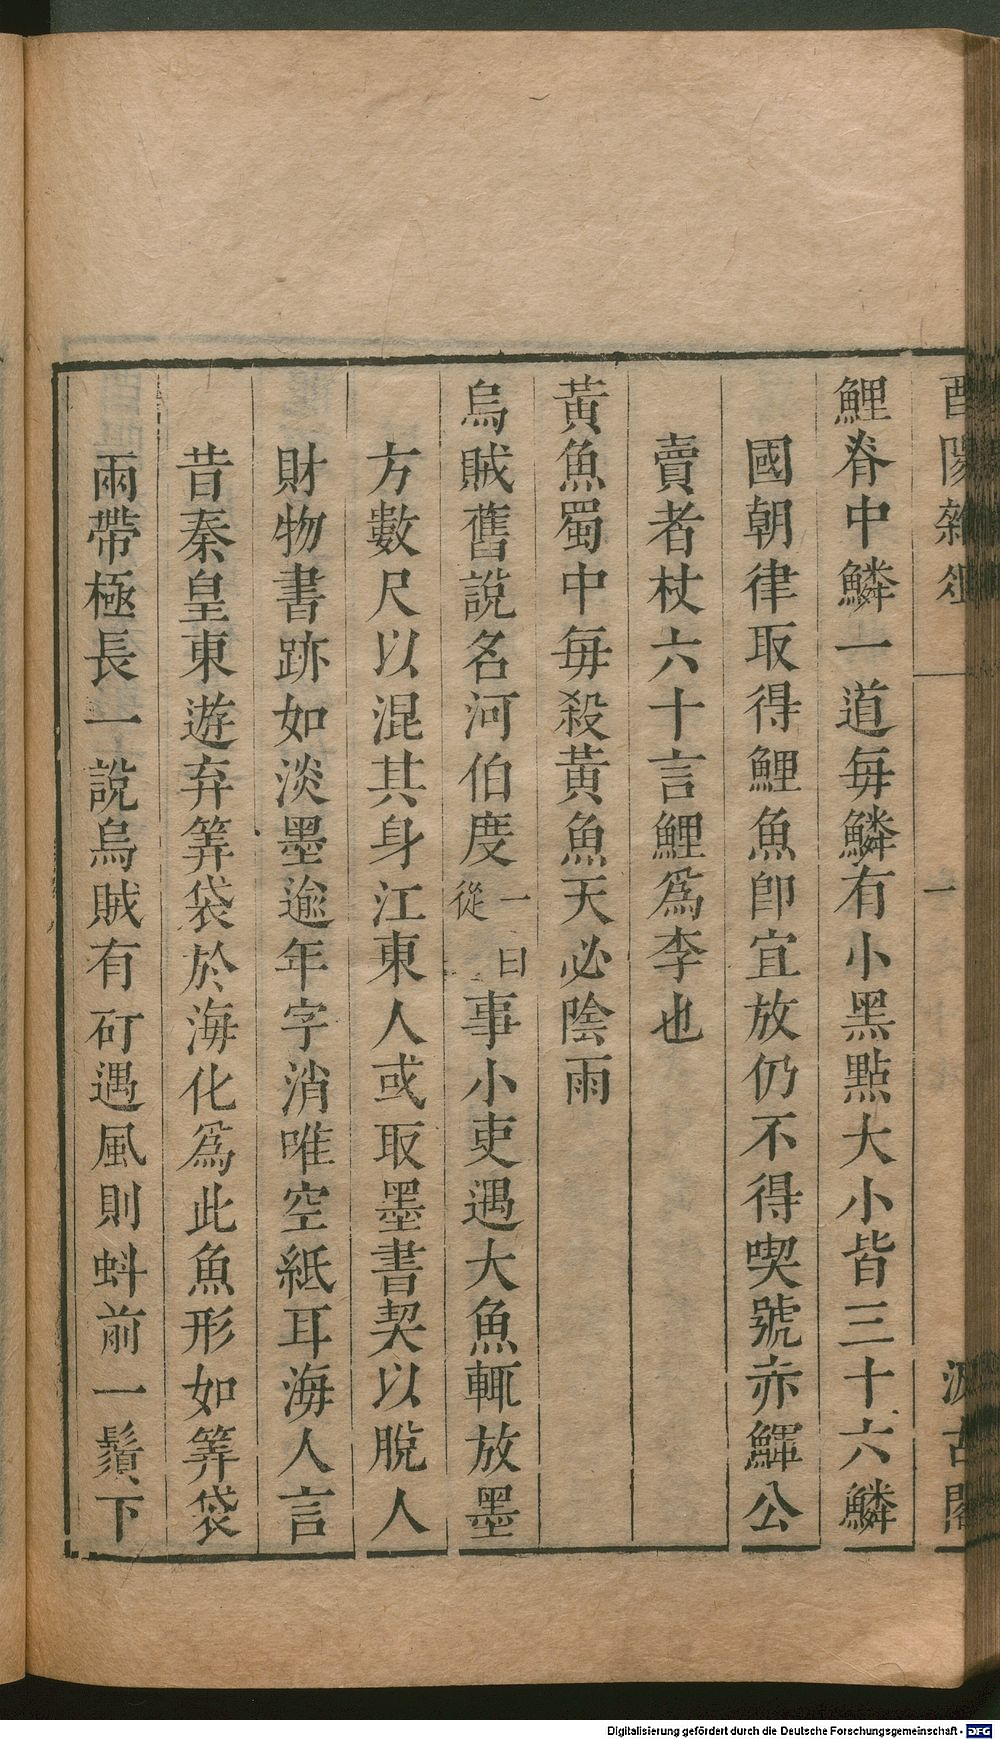 酉陽雜俎 一 汲古閣
鯉脊中鱗一道每鱗有小黑點大小皆三十六鱗
國朝律取得鯉魚卽宜放仍不得喫號赤鯶公
賣者杖六十言鯉爲李也
黃魚蜀中每殺黃魚天必陰雨
烏賊舊說名河伯度一曰從事小吏遇大魚輒放墨
方數尺以混其身江東人或取墨書契以脫人
財物書跡如淡墨逾年字消唯空紙耳海人言
昔秦皇東遊弃筭袋於海化爲此魚形如筭袋
兩帶極長一說烏賊有矴遇風則蚪前一鬚下
Digitalisierung gefördert durch die Deutsche Forschungsgemeinschaft - DFG